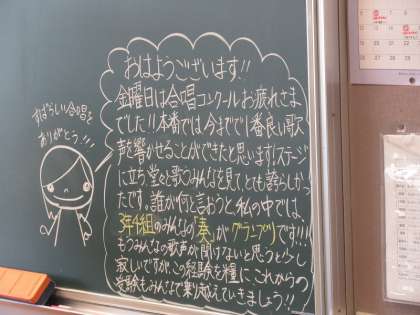 おはようございます!!
金曜日は合唱コンクールお疲れさま
でした!!本番では今までで1番良い歌
声を響かせることができたと思います!ステージ
に立ち、堂々と歌うみんなを見て、とても誇らしかっ
たです。誰が何と言おうと、私の中では、
3年4組のみんなの「奏」がグランプリです!!!
もうみんなの歌声が聞けないと思うと少し
寂しいですが、この経験を糧に、これからの
受験もみんなで乗り越えていきましょう!!
すばらしい合唱を
ありがとう!!!